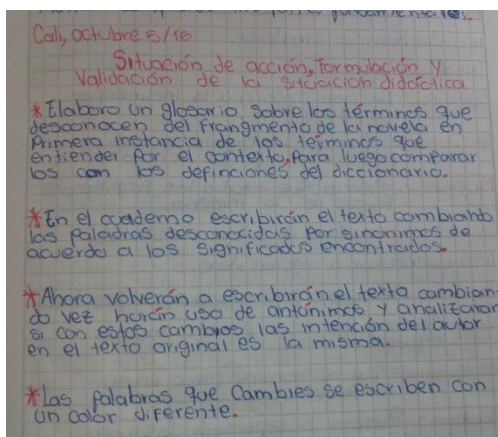 Cali, octubre 5/16
Situación de acción, formulación y
validación de la situación didáctica
* Elaboro un glosario sobre los términos que
desconocen del frangmento de la novela en
Primera instancia de los términos que
entiender por el contexto, Para luego comparar
los con los definciones del diccionario.
* En el cuaderno escribirán el texto cambiando
las Palabras desconocidas por sinonimos de
acuerdo a los significados encontrados.
* Ahora volverán a escribirán el texto cambian
do vez harán uso de antónimos y analizarán
si con estos cambios las intención del autor
en el texto original es la misma.
* Las palabras que Cambies se escriben con
un color diferente.